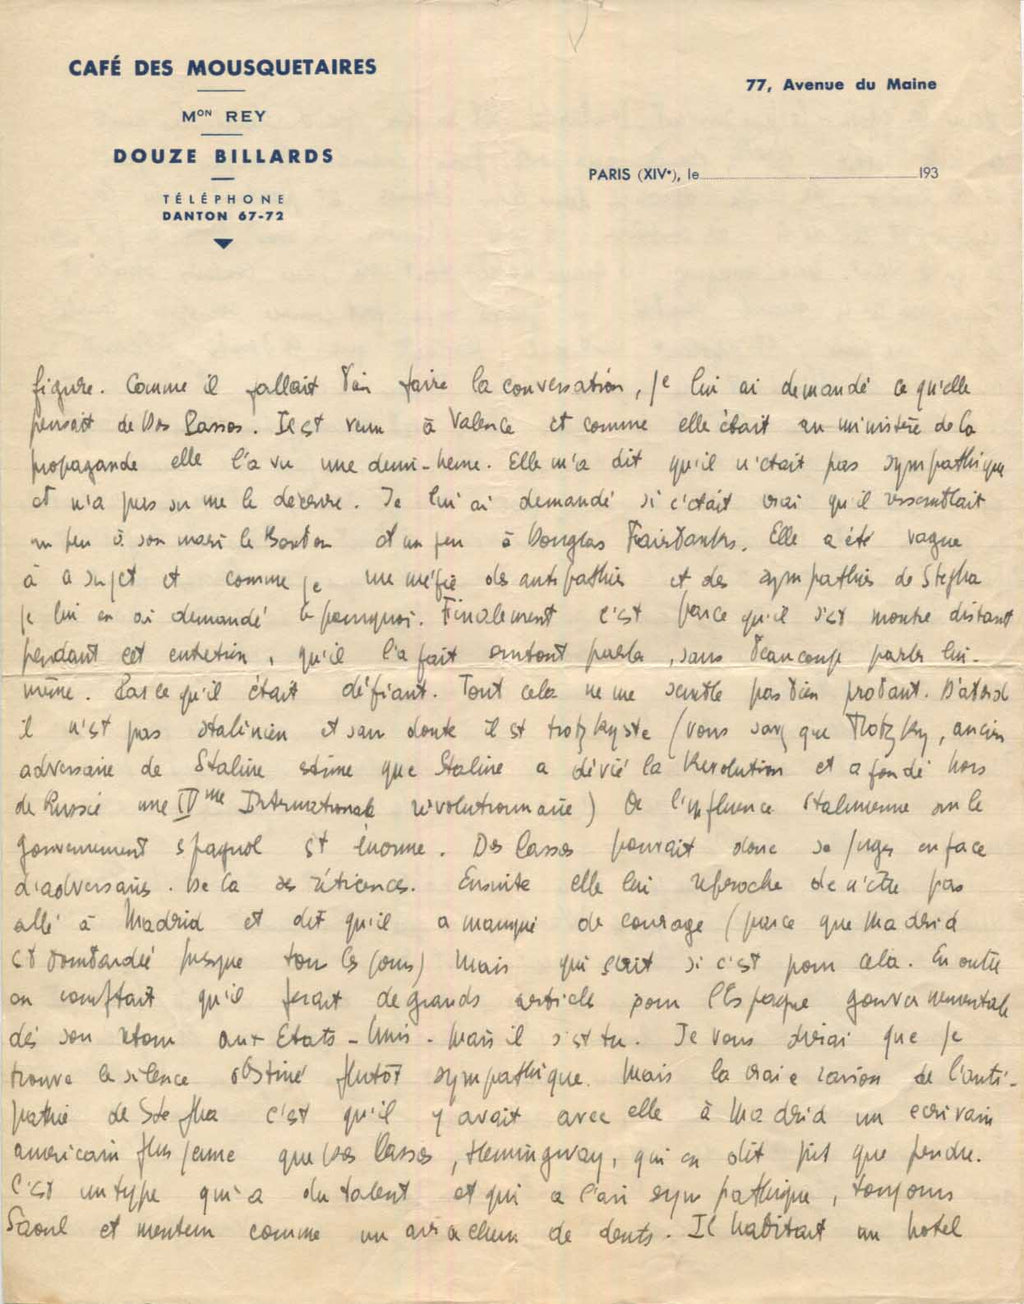 CAFÉ DES MOUSQUETAIRES
Mon REY
DOUZE BILLARDS
TÉLÉPHONE
DANTON 67-72
77, Avenue du Maine
PARIS (XIVe), le 193
figure. Comme il fallait bien faire la conversation, je lui ai demandé ce qu'elle
pensait de Dos Passos. Il est venu à Valence et comme elle était au ministère de la
propagande elle l'a vu une demi-heure. Elle m'a dit qu'il n'était pas sympathique
et n'a pas su me le décrire. Je lui ai demandé si c'était vrai qu'il ressemblait
un peu à son mari le et un peu à Douglas Fairbanks. Elle a été vague
à ce sujet et comme je me méfie des antipathies et des sympathies de Stepha
je lui en ai demandé le pourquoi. Finalement c'est parce qu'il s'est montré distant
pendant cet entretien, qu'il l'a fait surtout parler, sans beaucoup parler lui-
même. Parce qu'il était défiant. Tout cela ne me semble pas bien probant. D'abord
il n'est pas stalinien et sans doute il est trotzkyste (vous savez que Trotzky, ancien
adversaire de Staline estime que Staline a dévié la Révolution et a fondé hors
de Russie une IVme Internationale révolutionnaire) Or l'influence stalinienne sur le
gouvernement espagnol est énorme. Dos Passos pouvait donc se juger en face
d'adversaires. De là ses réticences. Ensuite elle lui reproche de n'être pas
allé à Madrid et dit qu'il a manqué de courage (parce que Madrid
est bombardée presque tous les jours) Mais qui sait si c'est pour cela. En outre
on comptait qu'il ferait de grands articles pour l'Espagne gouvernementale
dès son retour aux Etats-Unis. Mais il s'est tu. Je vous dirai que je
trouve ce silence obstiné plutôt sympathique. Mais la vraie raison de l'anti-
pathie de Stepha c'est qu'il y avait avec elle à Madrid un écrivain
américain plus jeune que Dos Passos, Hemingway, qui en dit pis que pendre.
C'est un type qui a du talent et qui a l'air sympathique, toujours
saoul et menteur comme un arracheur de dents. Il habitait un hotel